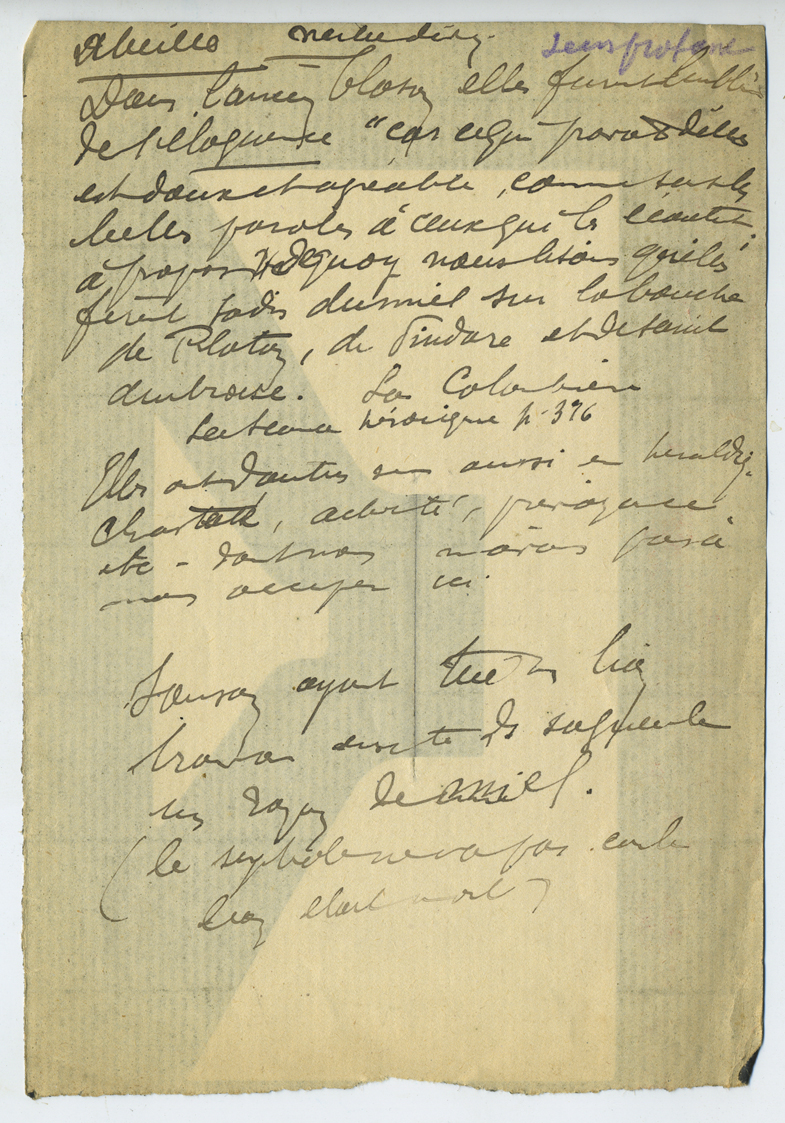 Abeille
Sens profane
Dans l'ancien blason elles furent l'emblème
de l'éloquence "car ce qui parait d'elles
est doux et agréable, comme sont les
belles paroles à ceux qui les écoutent;
à propos de quoy nous lisons qu'elles
firent jadis du miel sur la bouche
de Platon, de Pindare et de saint
Ambroise. La Colombière
héroïque p. 376
Elles ont d'autres sens aussi en heraldiq.
Chasteté, activité, prévoyance
etc - dont nous n'avons pas à
nous occuper ici.
Samson ayant tué un lion
trouva ensuite ds sa gueule
un rayon de miel.
(le symbole ne va pas car le
lion était mort)